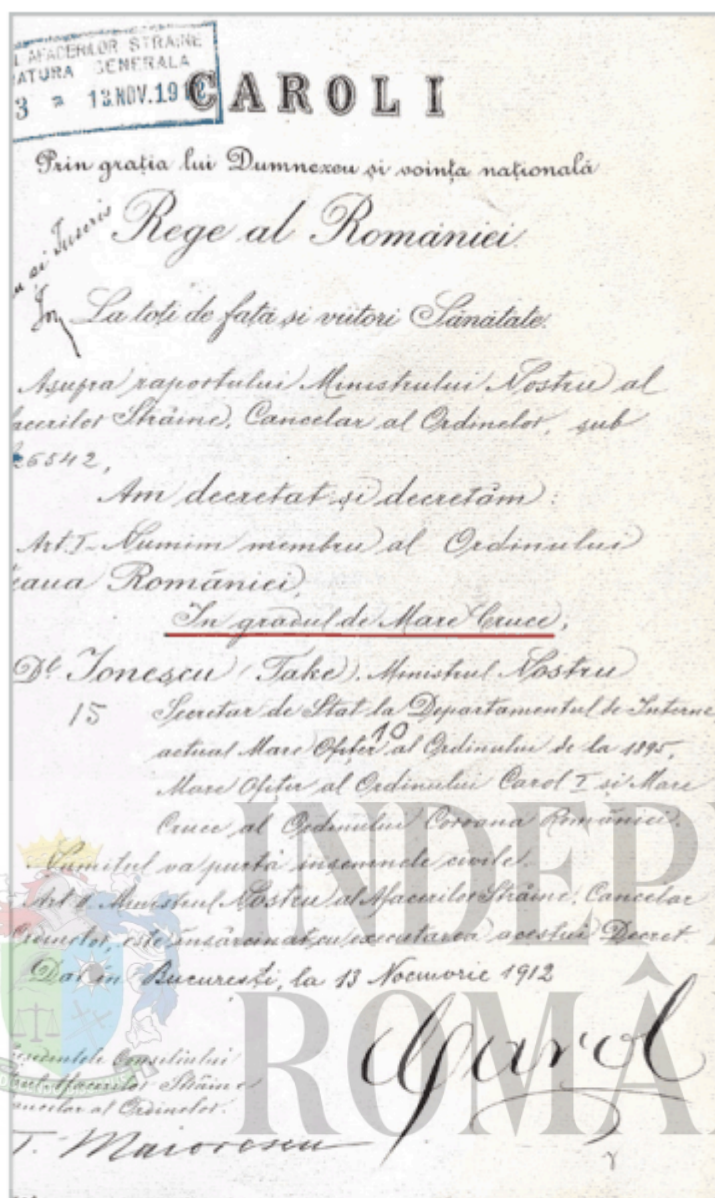 L AFACERILOR STRAINE
ATURA GENERALA
3 = 13.NOV.1912
CAROL I
Prin grația lui Dumnezeu și voința națională
Rege al României
și Inscris
La toți de față și viitori Sănătate.
Asupra raportului Ministrului Nostru al
facerilor Străine, Cancelar al Ordinelor, sub
26542,
Am decretat și decretăm:
Art. I Numim membru al Ordinului
eaua României,
In gradul de Mare Cruce,
Dl Ionescu (Take). Ministrul Nostru
15 Secretar de Stat la Departamentul de Interne
10
actual Mare Ofițer al Ordinului de la 1895,
Mare Ofițer al Ordinului Carol I și Mare
Cruce al Ordinului Coroana României.
Numitul va purtà insemnele civile.
Art II. Ministrul Nostru al Afacerilor Străine, Cancelar
Ordinelor, este însărcinat cu executarea acestui Decret.
Dat în București, la 13 Noemvrie 1912
Carol
esedintele Consiliului
Afacerilor Străine
ancelar al Ordinelor.
T. Maiorescu
INDEP
ROMÂ